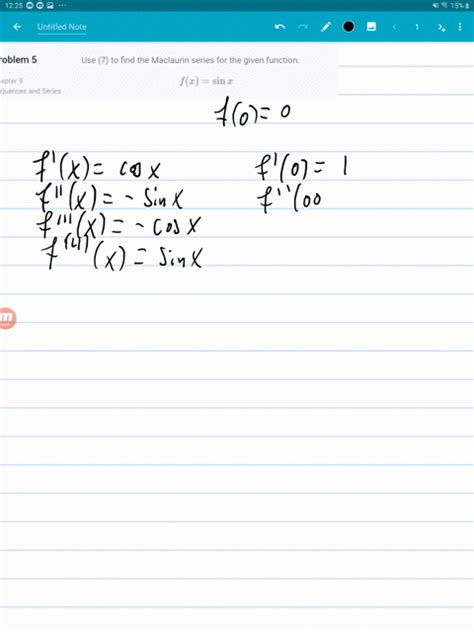 12:25 15%
Untitled Note 1
roblem 5 Use (7) to find the Maclaurin series for the given function.
apter 9
quences and Series
f(x) = sin x
f(0) = 0
f'(x) = cos x f'(0) = 1
f''(x) = - sin x f''(00
f'''(x) = - cos x
f^(4)(x) = sin x
m